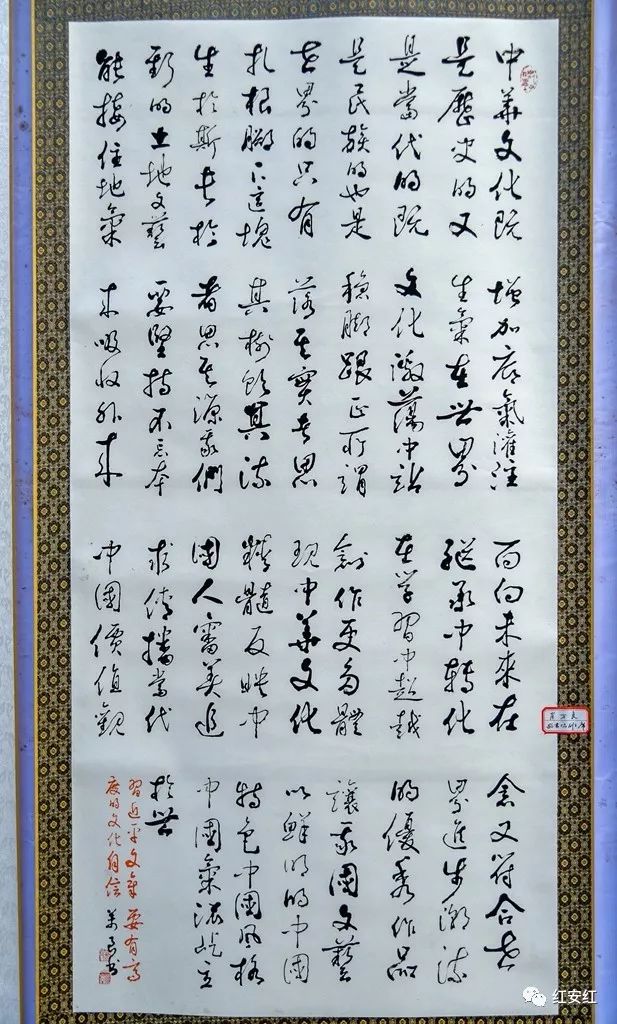 中華文化既
是歷史的又
是當代的既
是民族的也是
世界的只有
扎根腳下這塊
生於斯長於
斯的土地文藝
能接住地氣
增加底氣灌注
生氣在世界
文化激蕩中站
穩腳跟正所謂
落其實者思
其樹飲其流
者思其源我們
要堅持不忘本
來吸收外來
面向未來在
繼承中轉化
在學習中超越
創作更多體
現中華文化
精髓反映中
國人審美追
求傳播當代
中國價值觀
念又符合世
界進步潮流
的優秀作品
讓我國文藝
以鮮明的中國
特色中國風格
中國氣派屹立
於世
習近平文藝要有高
度的文化自信
红安红